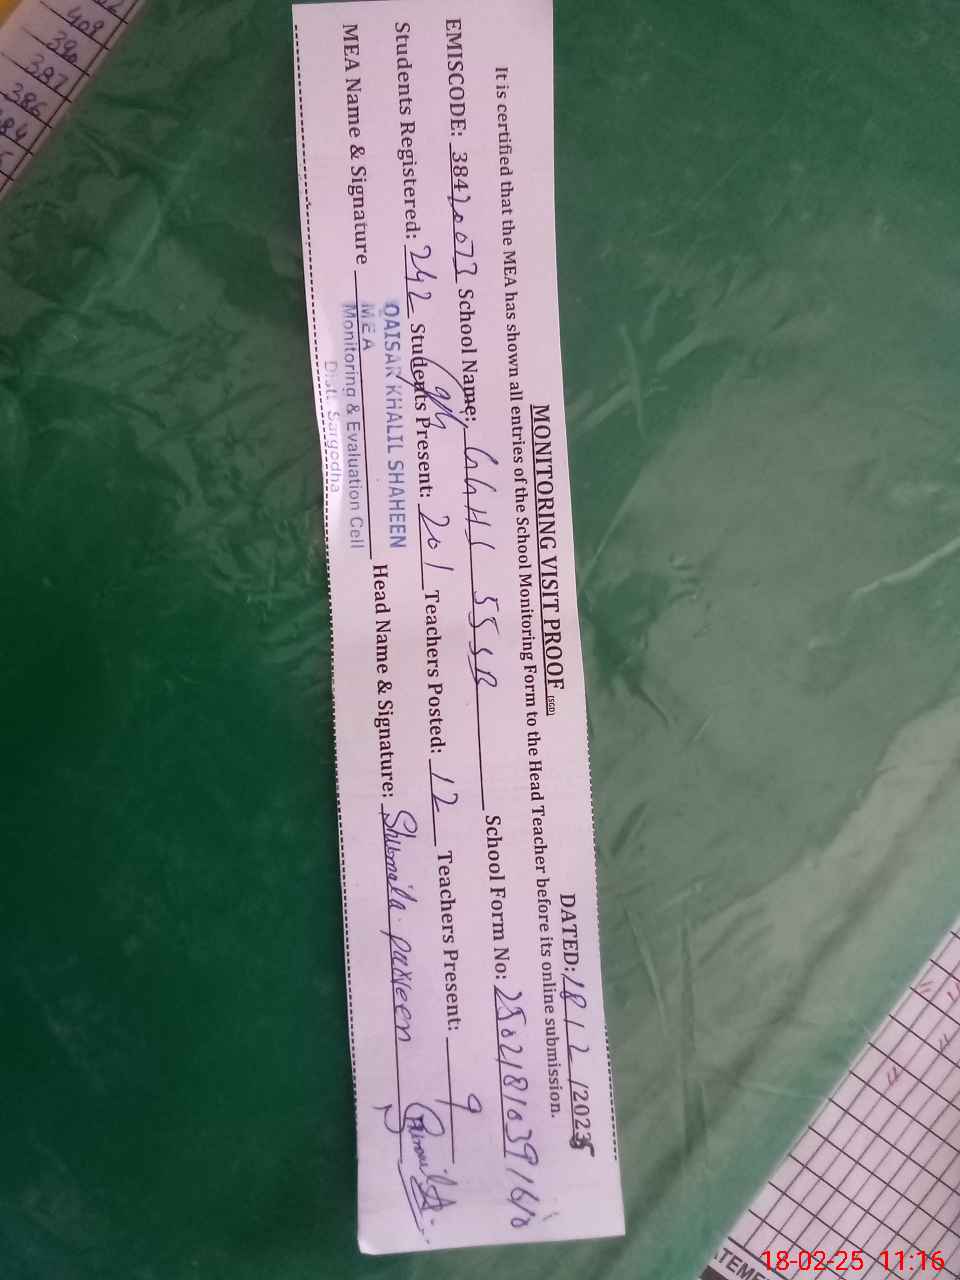 MONITORING VISIT PROOF (SGD)
DATED: 18 / 2 / 2025
It is certified that the MEA has shown all entries of the School Monitoring Form to the Head Teacher before its online submission.
EMISCODE: 38420073 School Name: GGHS 55SB School Form No:
Students Registered: 242 Students Present: 201 Teachers Posted: 12 Teachers Present: 9
MEA Name & Signature Head Name & Signature: Shumaila parveen
QAISAR KHALIL SHAHEEN
MEA
Monitoring & Evaluation Cell
Distt. Sargodha
409
390
387
386
18-02-25 11:16